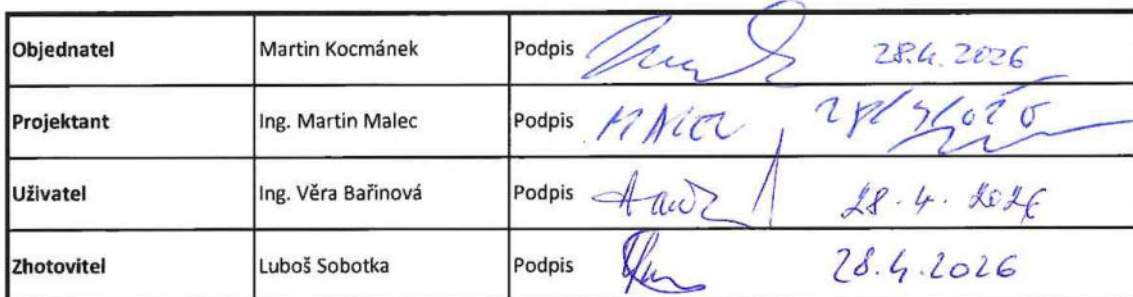 Objednatel Martin Kocmánek Podpis 28.4.2026
Projektant Ing. Martin Malec Podpis MALEC
Uživatel Ing. Věra Bařinová Podpis 28.4.2026
Zhotovitel Luboš Sobotka Podpis 28.4.2026